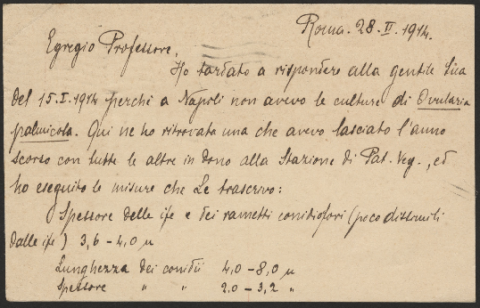 Roma. 28. II. 1914.
Egregio Professore.
Ho tardato a rispondere alla gentile Sua
del 15.I.1914 perchè a Napoli non avevo le culture di Ovularia
palmicola. Qui ne ho ritrovata una che avevo lasciato l'anno
scorso con tutte le altre in dono alla Stazione di Pat. Veg., ed
ho eseguito le misure che Le trascrivo:
Spessore delle ife e dei rametti conidiofori (poco dissimili
dalle ife) 3,6 - 4,0 µ
Lunghezza dei conidii 4,0 - 8,0 µ
Spessore " " 2.0 - 3,2 "